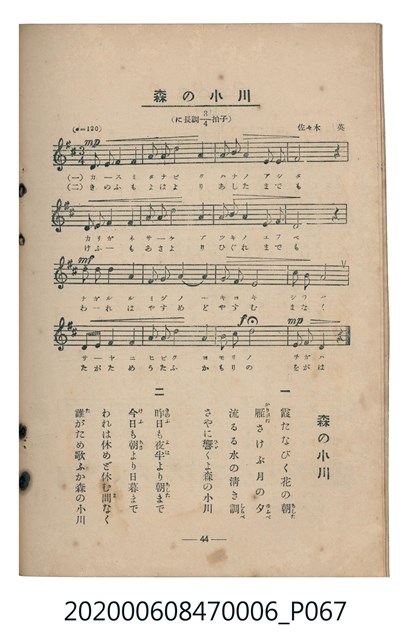 森の小川
(に長調 3/4 拍子)
(♩=120)
佐々木 英
mp
(一) カースミタナビク ハナノアシタ
(二) きのふもよはより あしたまでも
カリガネサケブ ツキノユフベ
けふーもあさより ひぐれまでも
mf
ナガルルミヅノ ーキヨキシラベ
われはやすめど やすむまなく
f
mp
サーヤニヒビク ヨモリノヲガハ
たがためうたふ かもりのをがは
森の小川
一
霞たなびく花の朝
雁さけぶ月の夕
流るる水の清き調
さやに響くよ森の小川
二
昨日も夜半より朝まで
今日も朝より日暮まで
われは休めど休む間なく
誰がため歌ふか森の小川
—44—
202000608470006_P067